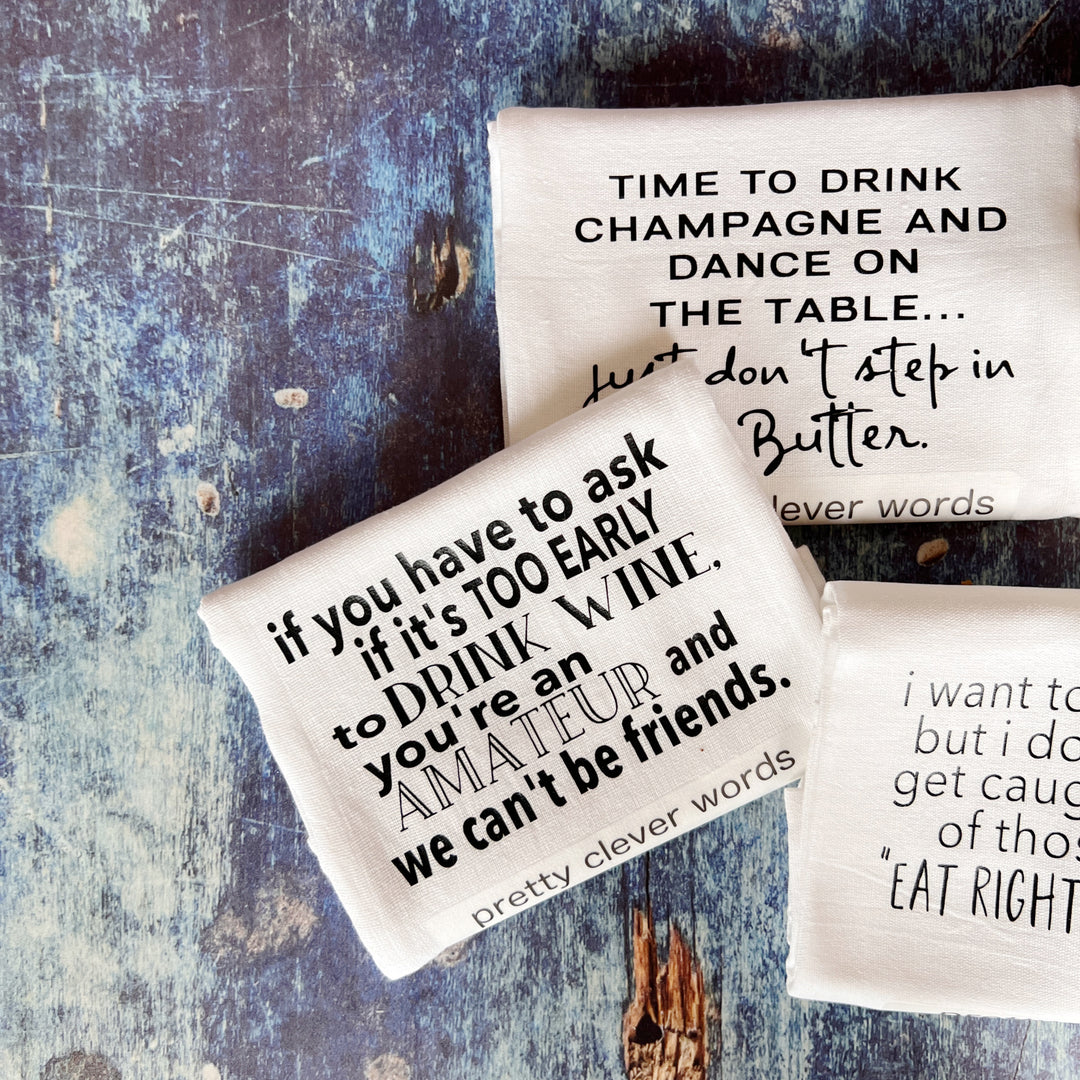 TIME TO DRINK
CHAMPAGNE AND
DANCE ON
THE TABLE...
Just don't step in
Butter.
clever words
if you have to ask
if it's TOO EARLY
to DRINK WINE,
you're an
AMATEUR and
we can't be friends.
pretty clever words
i want to
but i do
get caug
of thos
"EAT RIGHT